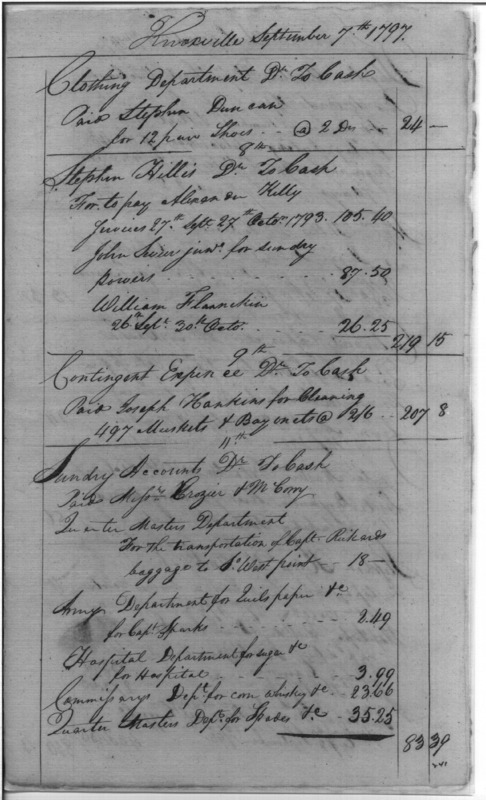 Knoxville September 7.th 1797.
Clothing Department Dr. To Cash
Paid Stephen Duncan
for 12 pair Shoes . . @ 2 Drs 24 —
8th
Stephen Hillis Dr. To Cash
For to pay Alexander Kelly
Juries 27.th Sept. 27th Octor. 1793. 105.40
John Sevier junr. for sundry
powers . . . . . . 87.50
William Flannekin
26th Sept. 30th Octo. . . . . 26.25
219 15
9th
Contingent Expence Dr. To Cash
Paid Joseph Hankins for Cleaning
497 Muskets & Bayonets @ 2/6 207 8
11th
Sundry Accounts Dr. To Cash
Paid Messrs. Crozier & McCorry
Quarter Masters Department
For the transportation of Capt. Richards
baggage to S. West point — 18 —
Army Department for Quils paper &c
for Capt. Sparks . . . . . 2.49
Hospital Department for sugar &c
for Hospital . . . . . 3.99
Commissarys Dept. for corn whiskey &c . 23.66
Quarter Masters Dept. for Spades &c . 35.25
83 39